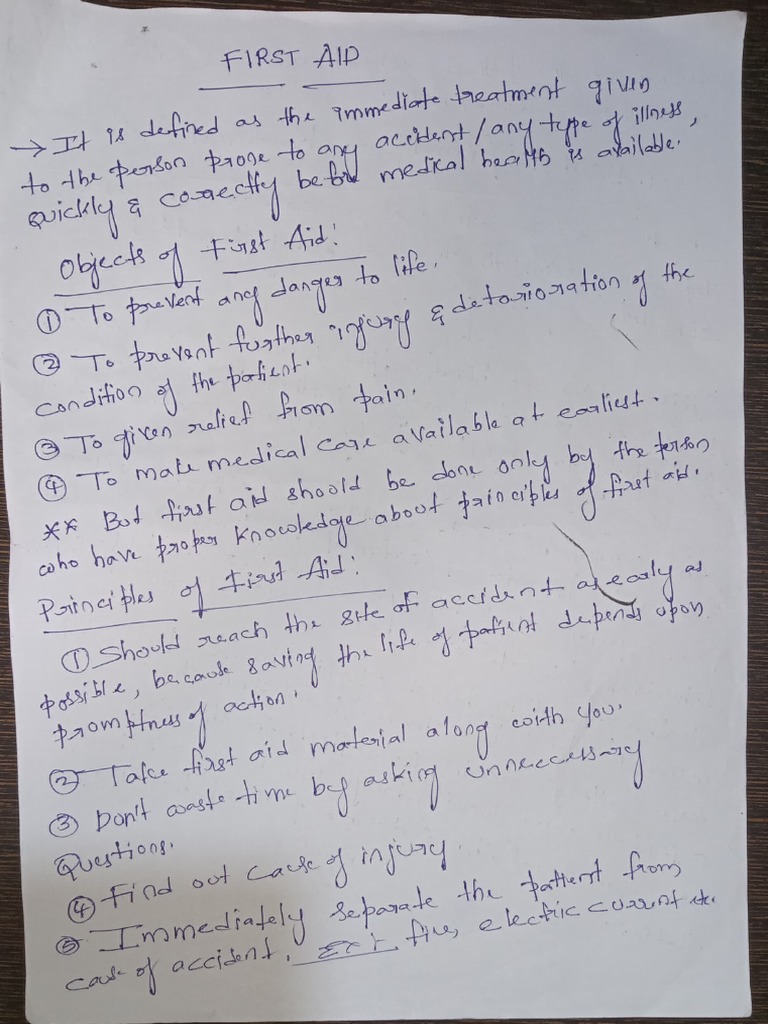 FIRST AID
→ It is defined as the immediate treatment given
to the person prone to any accident/any type of illness,
quickly & correctly before medical health is available.
Objects of First Aid:
① To prevent any danger to life.
② To prevent further injury & detorioration of the
condition of the patient.
③ To given relief from pain.
④ To make medical care available at earliest.
** But first aid should be done only by the person
who have proper knowledge about principles of first aid.
Principles of First Aid:
① Should reach the site of accident as early as
possible, because saving the life of patient depends upon
promptness of action.
② Take first aid material along with you.
③ Don't waste time by asking unneccessary
Questions.
④ Find out cause of injury.
⑤ Immediately separate the patient from
cause of accident. Ex: fire, electric current etc.